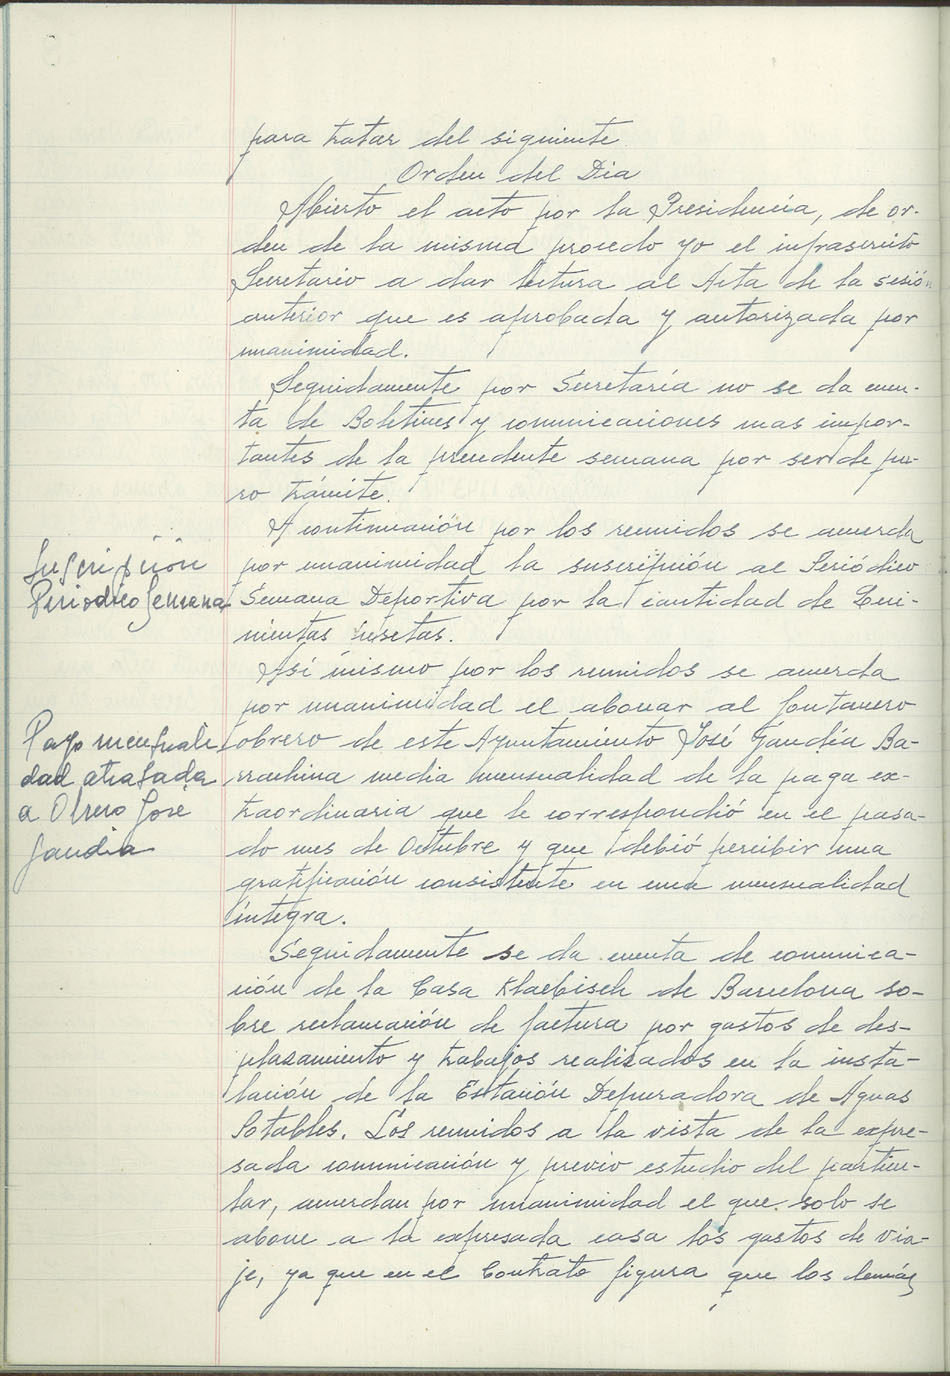 para tratar del siguiente
Orden del Dia
Abierto el acto por la Presidencia, de or-
den de la misma procedo yo el infrascrito
Secretario a dar lectura al Acta de la sesión
anterior que es aprobada y autorizada por
unanimidad.
Seguidamente por Secretaría no se da cuen-
ta de Boletines y comunicaciones mas impor-
tantes de la precedente semana por ser de pu-
ro trámite.
A continuación por los reunidos se acuerda
por unanimidad la suscripción al Periódico
Semana Deportiva por la cantidad de
Pesetas.
Suscripción
Periodico Semana
Así mismo por los reunidos se acuerda
por unanimidad el abonar al fontanero
obrero de este Ayuntamiento José Gandía Ba-
rrachina media mensualidad de la paga ex-
traordinaria que le correspondió en el pasa-
do mes de Octubre y que debió percibir una
gratificación consistente en una mensualidad
íntegra.
Pago mensuali
dad atrasada
a Obrero Jose
Gandia
Seguidamente se da cuenta de comunica-
ción de la Casa Klaebisch de Barcelona so-
bre reclamación de factura por gastos de des-
plazamiento y trabajos realizados en la insta-
lación de la Estación Depuradora de Aguas
Potables. Los reunidos a la vista de la expre-
sada comunicación y previo estudio del particu-
lar, acuerdan por unanimidad el que solo se
abone a la expresada casa los gastos de via-
je, ya que en el Contrato figura que los demás